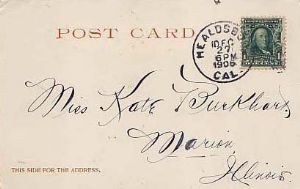 POST CARD
HEALDSBURG
DEC
27
6 PM
1906
CAL.
Miss Kate Burkhart,
Marion,
Illinois
THIS SIDE FOR THE ADDRESS.